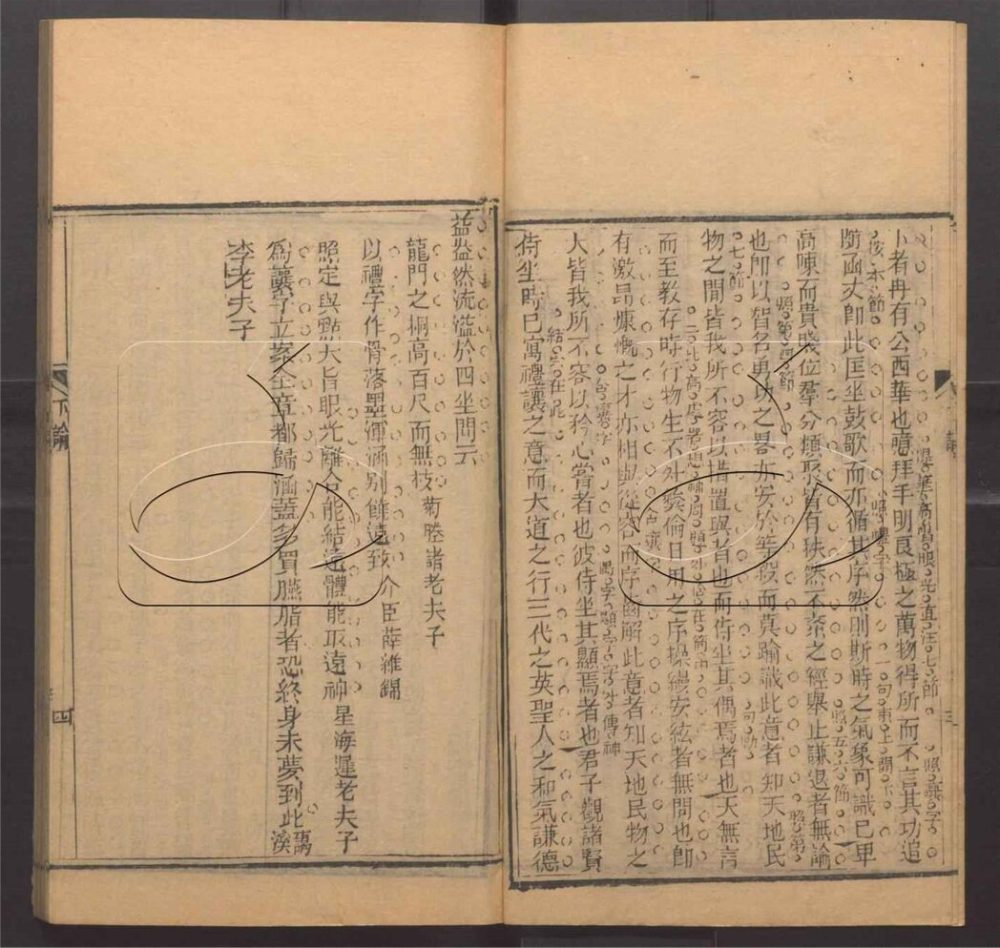 卜者冉有公西華也噫拜手明良極之萬物得所而不言其功追
隨函丈卽此匡坐鼓歌而亦循其序然則斯時之氣象可識已卑
高陳而貴賤位羣分類聚皆有秩然不紊之經舉止謙退者無論
也卽以智名勇功之畧亦安於等殺而莫踰識此意者知天地民
物之閒皆我所不容以措置與者也而侍坐其偶焉者也天無言
而至教存時行物生不外彝倫日用之序操縵安絃者無問也卽
有激昂慷慨之才亦相與從容而序函解此意者知天地民物之
大皆我所不容以矜心嘗者也彼侍坐其顯焉者也君子觀諸賢
侍坐時已寓禮讓之意而大道之行三代之英聖人之和氣謙德
益盎然流溢於四坐間云
龍門之桐高百尺而無枝 菊塍諸老夫子
以禮字作骨落墨渾涵別饒遠致 介臣薛維錦
照定與點大旨眼光離合能結遠體能取遠神 星海遲老夫子
爲讓字立案全章都歸涵蓋多買臙脂者恐終身未夢到此 禹溪
李老夫子
下論
四